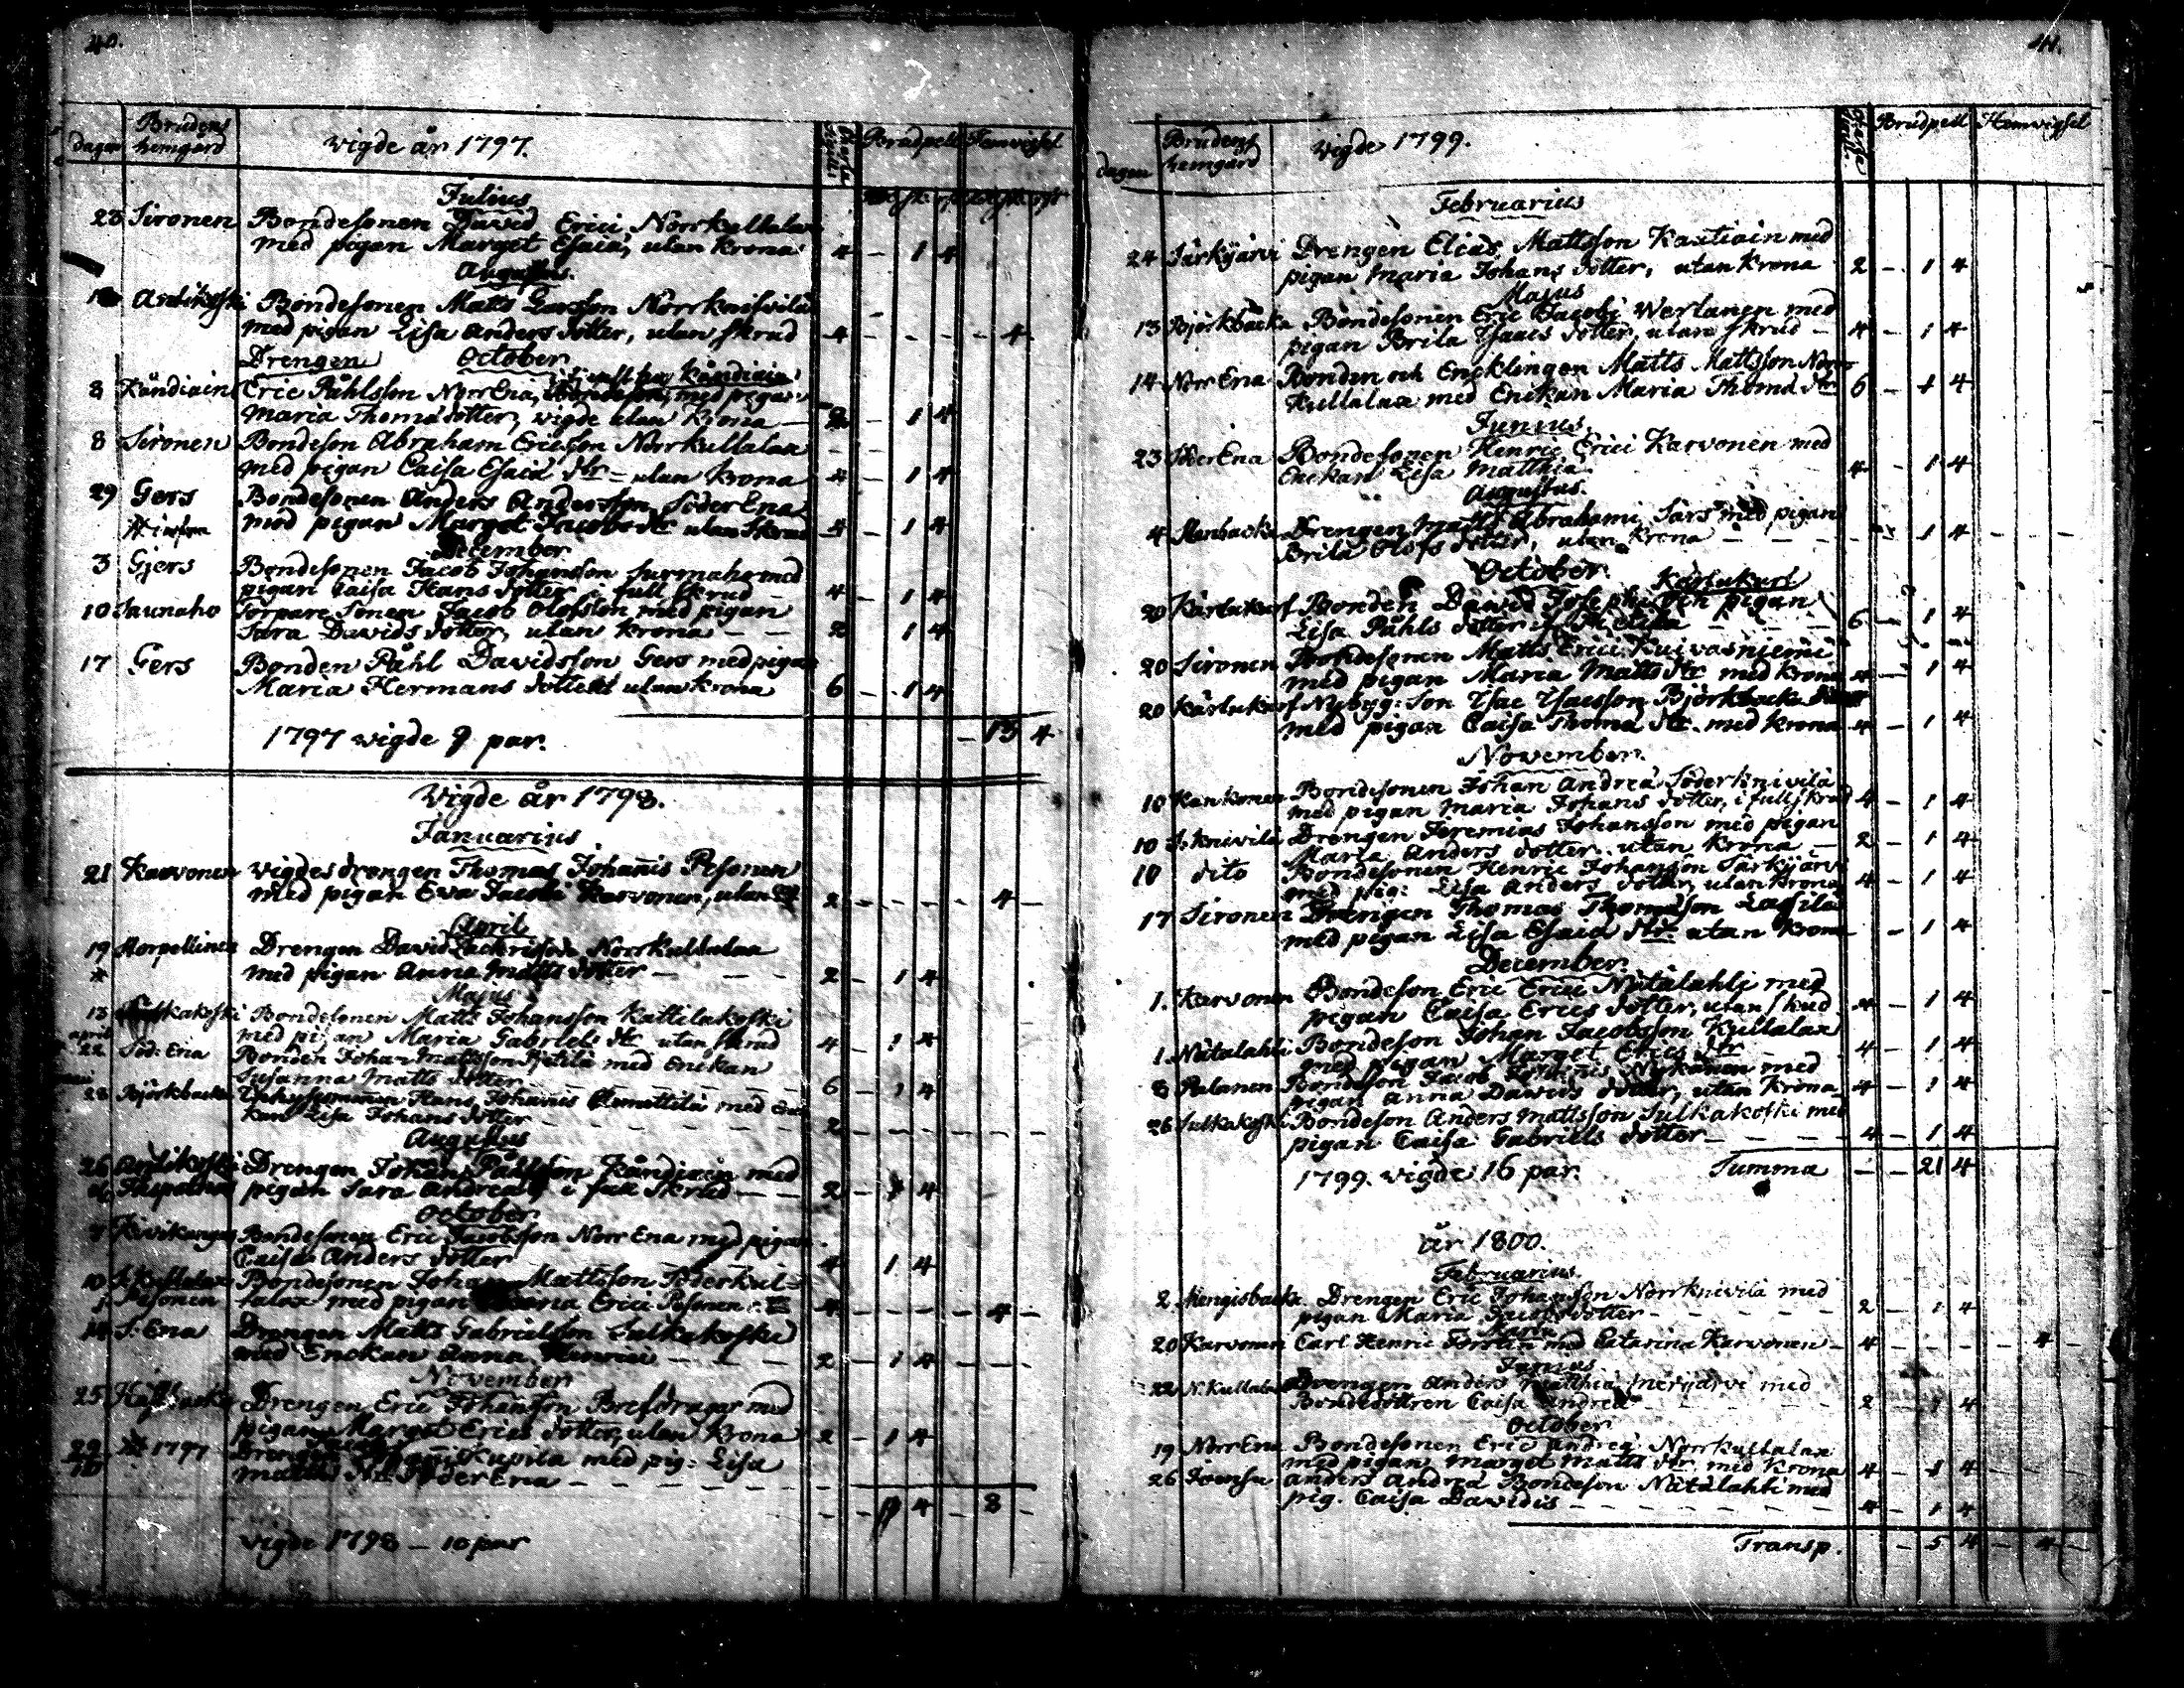 40.
dagen Brudens hemgård Vigde år 1797. Brudpell Hemvigsel
Julius
23 Sironen Bondesonen David Erici Norrkullalax
med pigan Marget Esaiæ, utan Krona 4 - 1 4
Augustus.
Antikoski Bondesonen Matts Larsson Norrknifvilä
med pigan Lisa Anders dotter, utan skrud 4 - - - - 4
Drengen October
8 Kåndiain Eric Påhlsson NorrEna, med pigan
Maria Thomæ dotter, vigde utan Krona - 2 - 1 4
8 Sironen Bondeson Abraham Ericsson Norrkullalax
med pigan Caisa Esaiæ dtr - utan Krona 4 - 1 4
29 Gers Bondesonen Anders Andersson SöderEna
med pigan Marget Jacobs dtr utan skrud 4 - 1 4
December
3 Gjers Bondesonen Jacob Johansson Surmaho med
pigan Caisa Hans dotter i full skrud - 4 - 1 4
10 Saunaho Torpare Sonen Jacob Olofsson med pigan
Sara Davids dotter, utan Krona - - 2 1 4
17 Gers Bonden Påhl Davidsson Gers med pigan
Maria Hermans dotter utan Krona 6 - 1 4
1797 vigde 9 par. - 13 4
Vigde år 1798.
Januarius
21 Karvonen vigdes drengen Thomas Johannis Pesonen
med pigan Eva Jacobi Karvonen, utan 2 - - - - 4 -
April
19 Morpellinen Drengen David Zachrisson Norrkullalax
med pigan Anna Matts dotter - - - 2 - 1 4
Majus
13 Bondesonen Matts Johansson Kattilakoski
med pigan Maria Gabriels dtr utan skrud 4 - 1 4
april 22 Söd. Ena Bonden Johan Mattsson Pjetilä med Enckan
Susanna Matts dotter 6 - 1 4
28 Björkbacka Hans Johannis med Enc
kan Lisa Johans dotter 2 - - - -
Augustus
26 Antikoski Drengen Johan Påhlsson Kåndiain med
pigan Sara Andreæ i full skrud - - 2 - 1 4
October
7 Kivikangas Bondesonen Eric Jacobsson Norr Ena med pigan
Caisa Anders dotter 4 1 4
10 S. Kullalax Bondesonen Johan Mattsson Söderkul-
Pesonen lalax med pigan Erici Pesonen 4 - - - - 4 -
14 S. Ena Drengen Matts Gabrielsson Sulkakoski
med Enckan Anna Henrici - - - 2 - 1 4 - - -
November
25 Drengen Eric Johansson Brefdragar med
pigan Marget Erics dotter, utan Krona 2 - 1 4
1797 Drengen Kupila med pig: Lisa
Matts SöderEna - - - -
4 - 8 -
vigde 1798 - 10 par
41.
dagen Brudens hemgård Vigde 1799. Brudpell Hemvigsel
Februarius
24 Särkijärvi Drengen Elias Mattsson Kautiain med
pigan Maria Johans dotter, utan Krona 2 - 1 4
Majus
13 Björkbacka Bondesonen Eric Jacobi Wertanen med
pigan Brita Isaacs dotter utan skrud - 4 - 1 4
14 Norr Ena Bonden och Encklingen Matts Mattsson Norr
kullalax med Enckan Maria Thomæ dtr 6 - 1 4
Junius
23 Söder Ena Bondesonen Henric Erici Karvonen med
Enckan Lisa Matthiæ 4 - 1 4
Augustus.
4 Drengen Matts Abrahami Sars med pigan
Brita Olofs dotter, utan Krona - - - 1 4 - - -
October. Kärlukarf
20 Kärlukarf Bonden David Josephi och pigan
Lisa Påhls dotter 6 - 1 4
20 Sironen Bondesonen Matts Erici Kuivasniemi
med pigan Maria Matts dtr med Krona 4 - 1 4
20 Kärlukarf Nybyg: Son Isac Isacsson Björkbacka
med pigan Caisa Thomæ dtr. med Krona 4 - 1 4
November.
10 Kankonen Bondesonen Johan Andreæ Söderknivilä
med pigan Maria Johans dotter, i full skrud 4 - 1 4
10 S. Knivilä Drengen Jeremias Johansson med pigan
Maria Anders dotter utan Krona - 2 - 1 4
10 dito Bondesonen Henric Johansson Särkijärvi
med pig: Lisa Anders dotter, utan Krona 4 - 1 4
17 Sironen Drengen Thomas Thomasson Lassila
med pigan Lisa Esaiæ dtr utan Krona - 1 4
December.
1. Karvonen Bondeson Eric Erici Nätälahti med
pigan Caisa Erics dotter, utan skrud 4 - 1 4
1 Nätalahti Bondeson Johan Jacobsson Kullalax
med pigan Marget Erics dtr 4 - 1 4
8 Palanen Bondeson Jacob med
pigan Anna Davids dotter, utan Krona 4 - 1 4
26 Sulkakoski Bondeson Anders Mattsson Sulkakoski med
pigan Caisa Gabriels dotter - - - 4 - 1 4
1799. vigde 16 par. Summa - - 21 4
år 1800.
Februarius
2 Mengisbacka Drengen Eric Johansson Norrknivila med
pigan Maria Jacobs dotter - - - 2 - 1 4
20 Karvonen Carl Henric Forslin med Catarina Karvonen - 4 - - - - 4 -
Junius
22 N. Kullalax Drengen Anders Matthiæ Merijärvi med
Bondedottren Caisa Andreæ - - - 2 - 1 4
October
19 NorrEna Bondesonen Eric Andreæ Norrkullalax
med pigan Marget Matts dtr. med Krona 4 - 1 4
26 Joensu Anders Andreæ Bondeson Nätälahti med
pig. Caisa Davidis - - - - 4 - 1 4
Transp. - 5 4 - 4 -